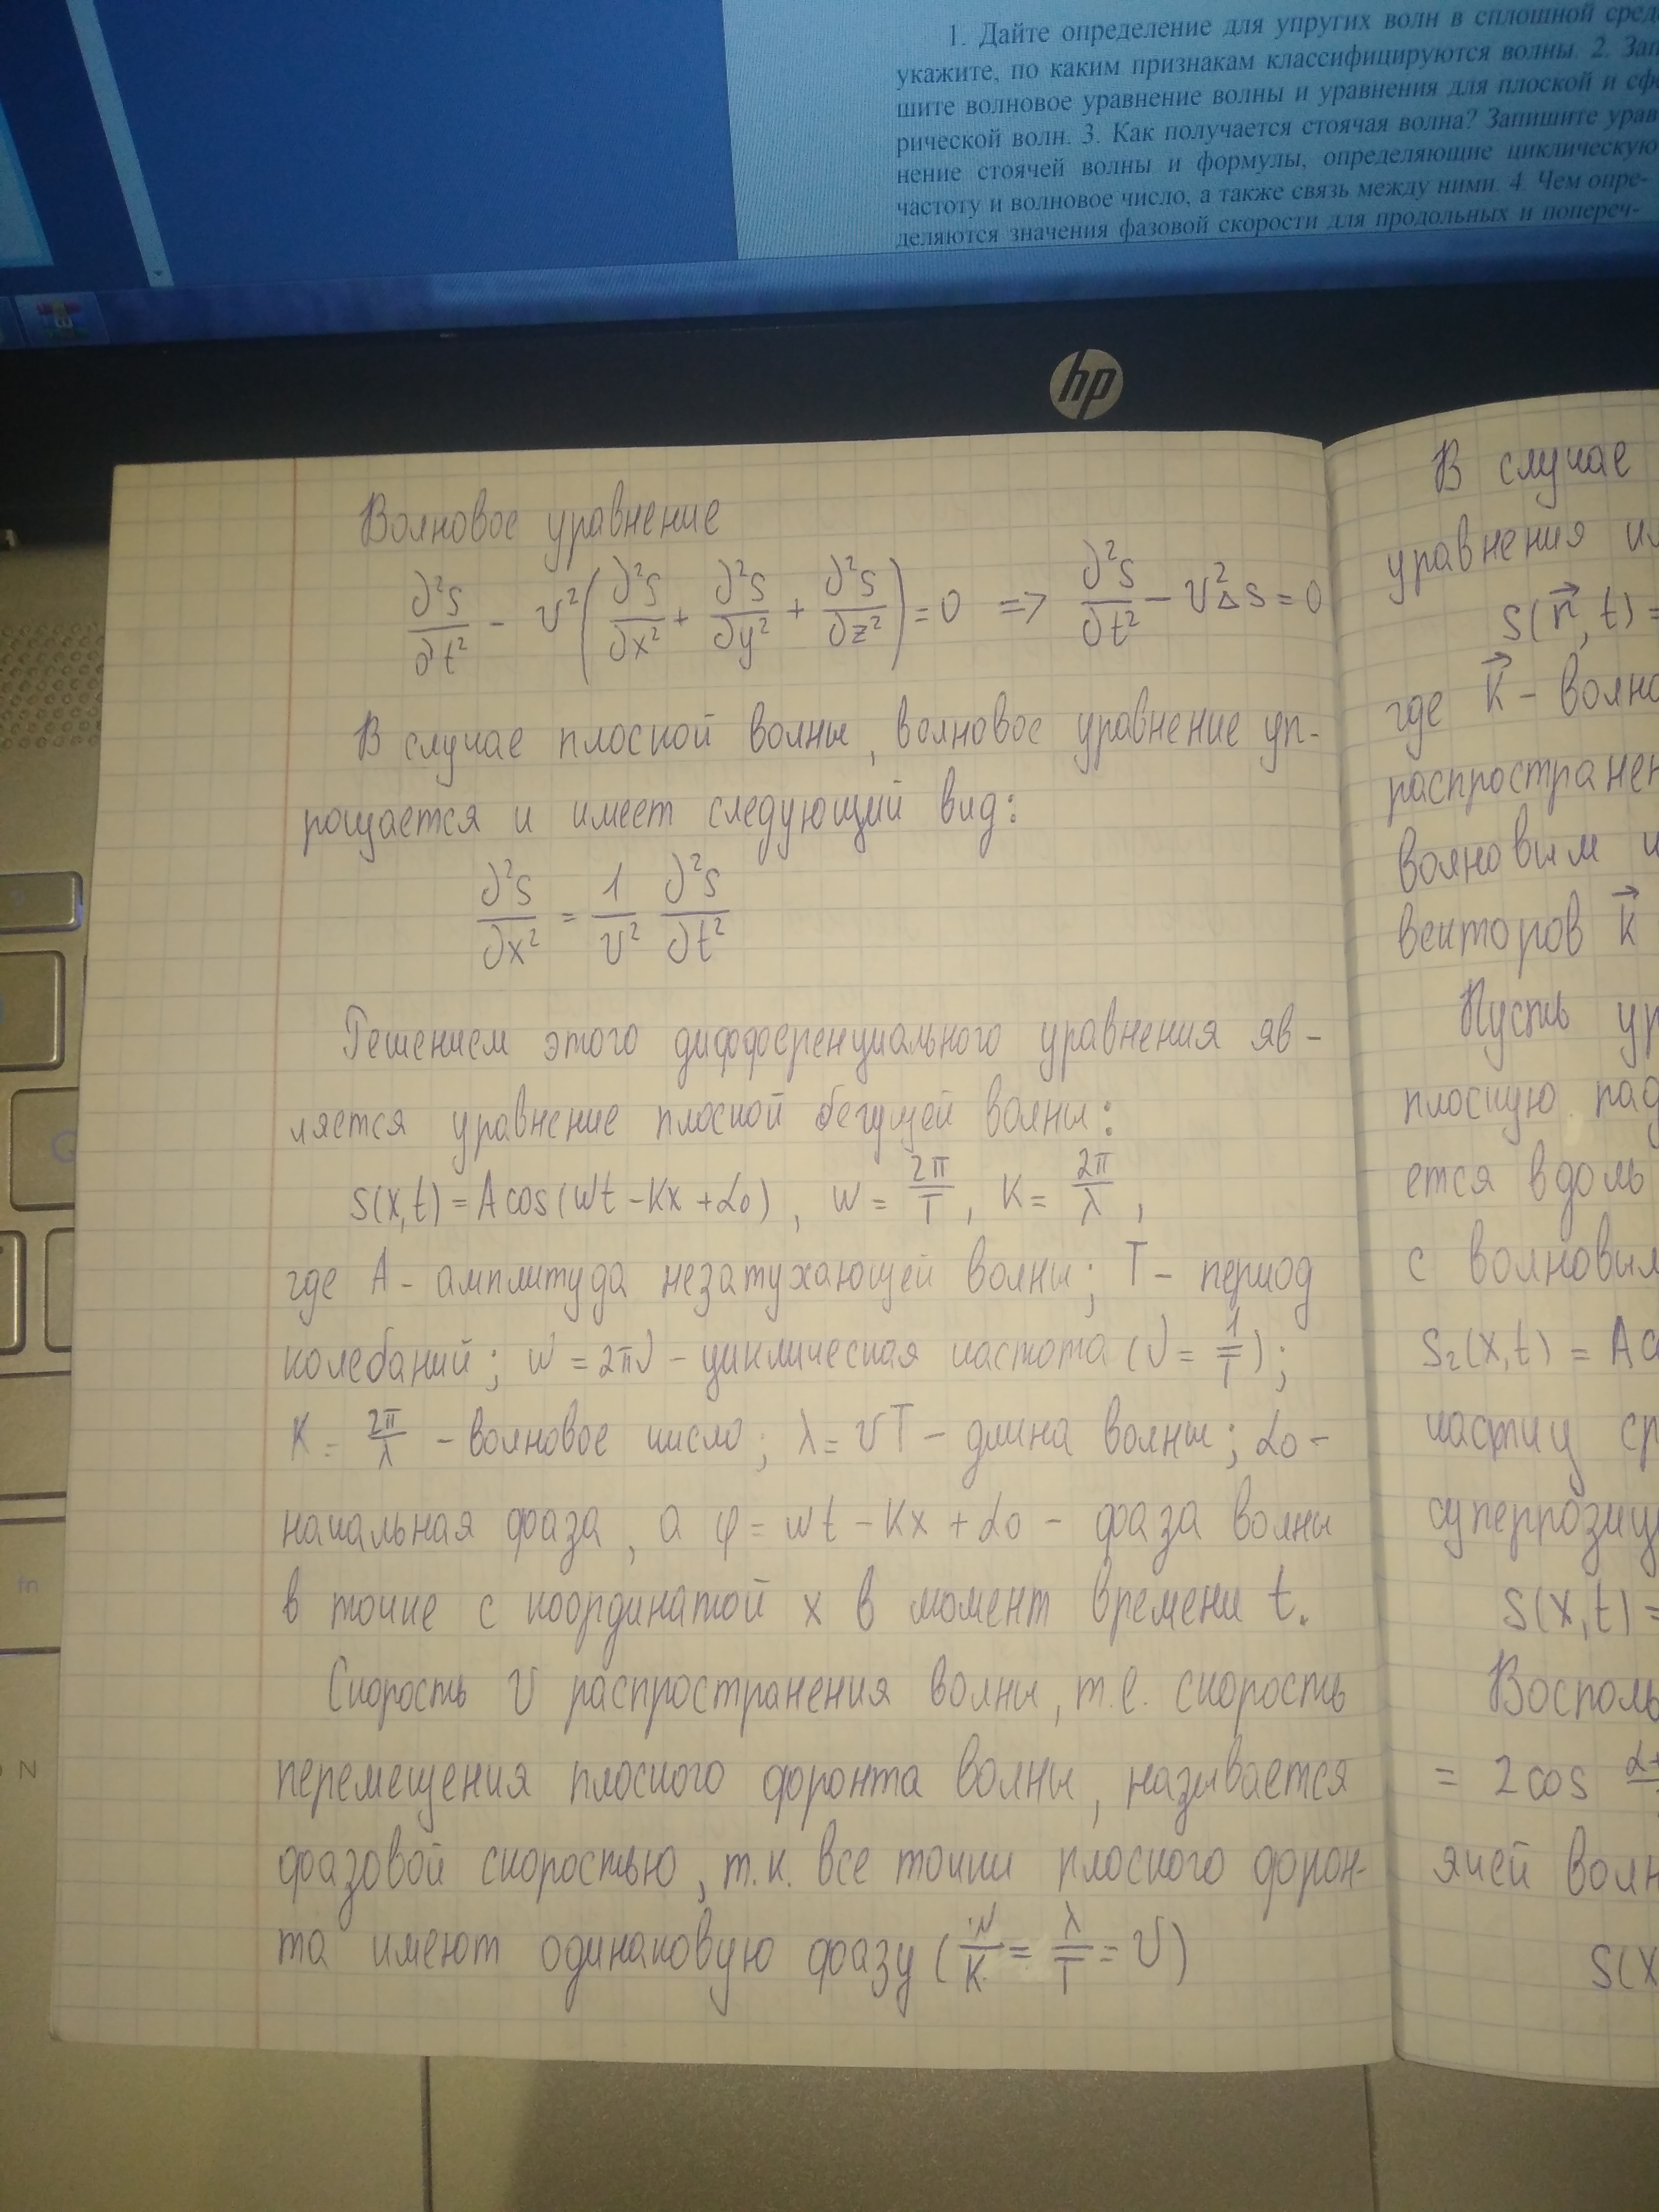 1. Дайте определение для упругих волн в сплошной сред
укажите, по каким признакам классифицируются волны. 2. Зап
шите волновое уравнение волны и уравнения для плоской и сфе
рической волн. 3. Как получается стоячая волна? Запишите урав
нение стоячей волны и формулы, определяющие циклическую
частоту и волновое число, а также связь между ними. 4. Чем опре-
деляются значения фазовой скорости для продольных и попереч-
hp
Волновое уравнение
∂²S/∂t² - v²(∂²S/∂x² + ∂²S/∂y² + ∂²S/∂z²) = 0 => ∂²S/∂t² - v²ΔS = 0
В случае плоской волны, волновое уравнение уп-
рощается и имеет следующий вид:
∂²S/∂x² = 1/v² ∂²S/∂t²
Решением этого дифференциального уравнения яв-
ляется уравнение плоской бегущей волны:
S(x,t) = A cos(wt - Kx + α₀), w = 2π/T, K = 2π/λ,
где A - амплитуда незатухающей волны; T - период
колебаний; w = 2πν - циклическая частота (ν = 1/T);
K = 2π/λ - волновое число; λ = vT - длина волны; α₀ -
начальная фаза, а φ = wt - Kx + α₀ - фаза волны
в точке с координатой x в момент времени t.
Скорость v распространения волны, т.е. скорость
перемещения плоского форонта волны, называется
фазовой скоростью, т.к. все точки плоского форон-
та имеют одинаковую фразу (w/K = λ/T = v)
В случае
уравнения и
S(r⃗, t) =
где K⃗ - волно
распространен
волновым и
векторов K⃗
Пусть ур
плоскую пад
ется вдоль
с волновым
S₂(x,t) = A c
частиц ср
суперпозиц
S(x,t) =
Восполь
= 2 cos α+
ячей волн
S(x
fn
N